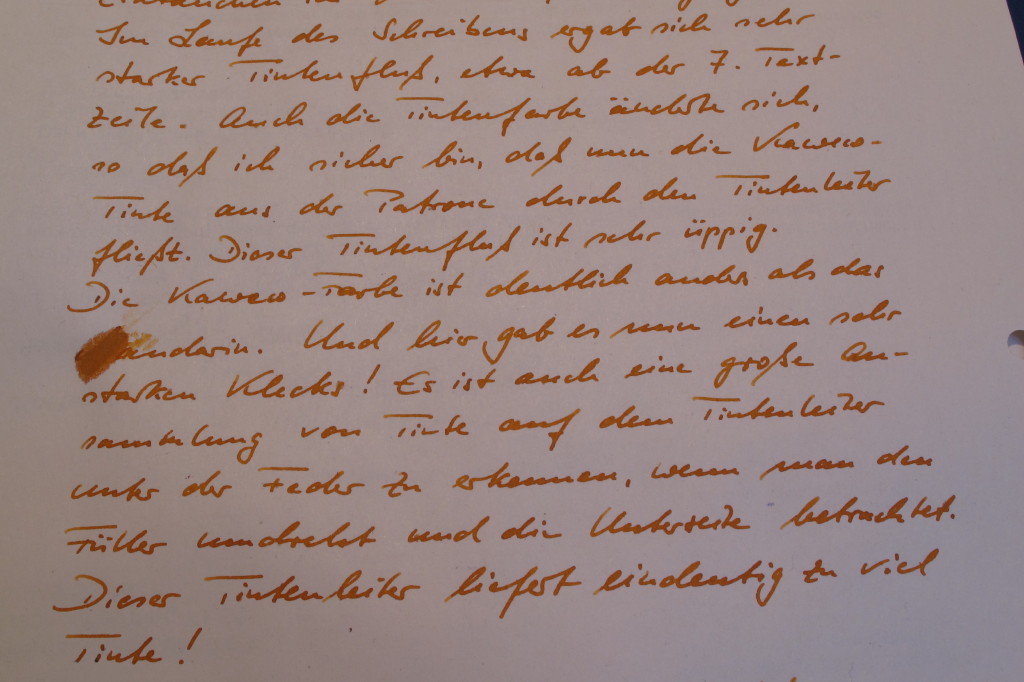 Im Laufe des Schreibens ergab sich sehr
starker Tintenfluß, etwa ab der 7. Text-
zeile. Auch die Tintenfarbe änderte sich,
so daß ich sicher bin, daß nun die Kaweco-
Tinte aus der Patrone durch den Tintenleiter
fließt. Dieser Tintenfluß ist sehr üppig.
Die Kaweco-Farbe ist deutlich anders als das
andarin. Und hier gab es nun einen sehr
starken Klecks! Es ist auch eine große An-
sammlung von Tinte auf dem Tintenleiter
unter der Feder zu erkennen, wenn man den
Füller umdreht und die Unterseite betrachtet.
Dieser Tintenleiter liefert eindeutig zu viel
Tinte!